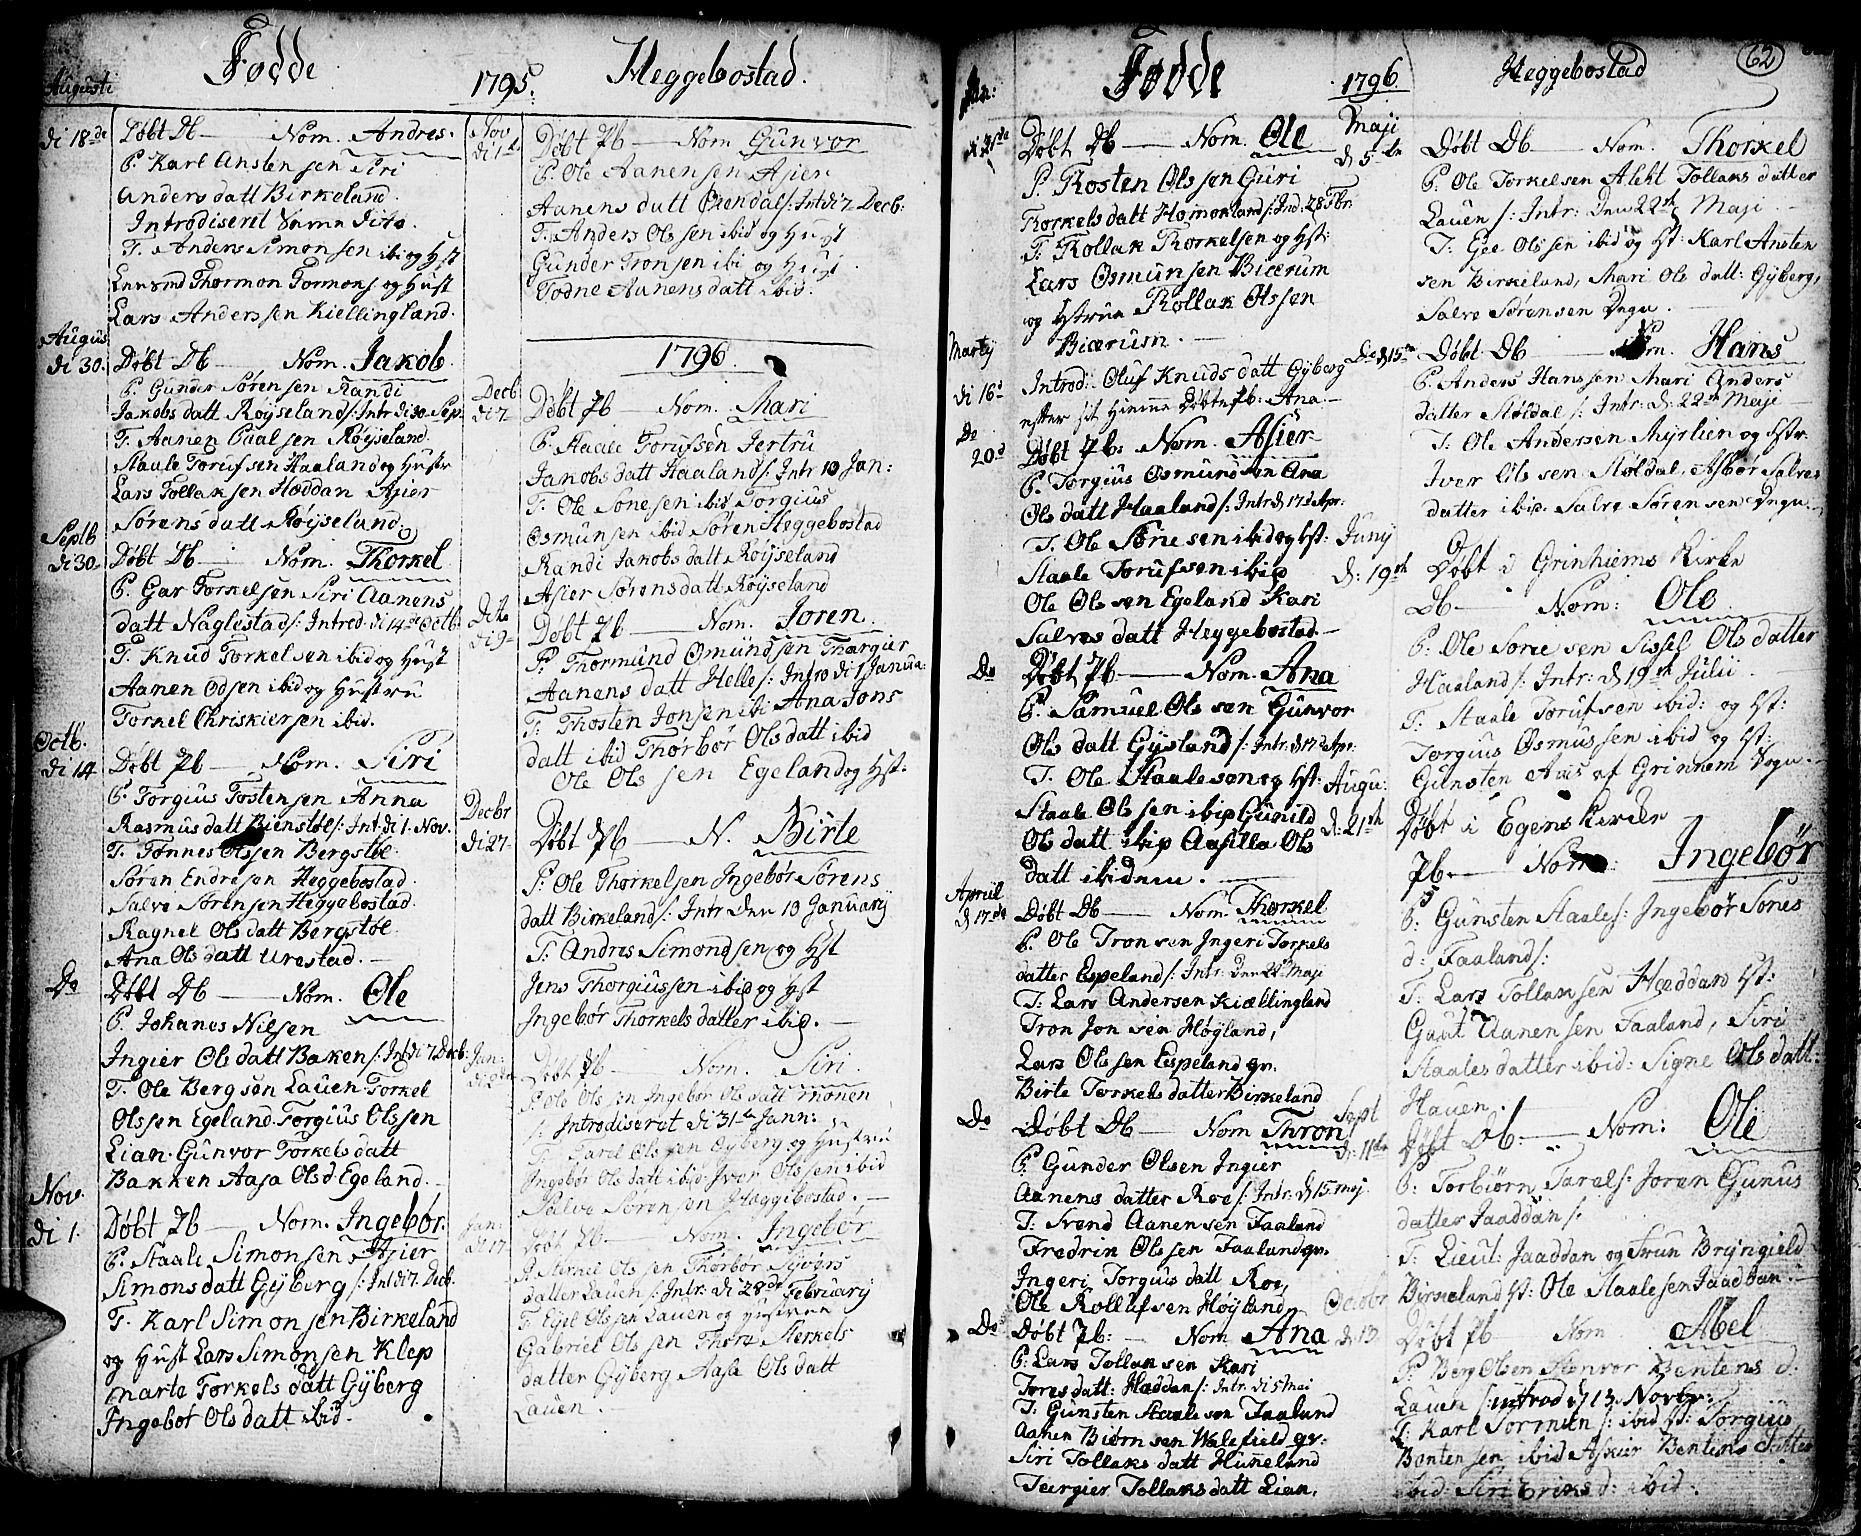 Fødde
1795.
Heggebostad.
Augusti
di 18de
Døbt Db — Nom. Andres.
P. Karl Anstensen Siri
Andersdatt Birkeland.
Introdiserit Samme dito.
T. Anders Simonsen ibi og Hst
Thormon Tormons og Hust
Lars Anderssen Kiellingland.
Augus
di 30.
Døbt Db — Nom. Jakob.
P. Gunder Sørensen Randi
Jakobs datt Røÿseland /: Intr di 30 Sep.
T. Aanen Paalsen Røÿseland.
Staale Torufsen Haaland og Hustr
Lars Tollaksen Hæddan Asier
Sørens datt Røÿseland.
Septb
di 30
Døbt Db — Nom. Thorkel
P. Gar Torkelsen Siri Aanens
datt Naglestad /: Introd. di 14de Octb.
T. Knud Torkelsen ibid og Hust
Aanen Odsen ibid og Hustru
Torkel Chriskiersen ibid.
Octb.
di 14
Døbt Pb — Nom. Siri
P. Torgius Tostensen Anna
Rasmus datt Bienstøl /: Int di 1. Nov.
T. Tønnes Olssen Bergstøl.
Søren Endresen Heggebostad.
Salve Sørensen Heggebostad.
Ragnel Ols datt Bergstøl.
Ana Ols datt Urestad. —
Do
Døbt Db — Nom. Ole
P. Johanes Nilsen
Ingier Ols datt Baken /: Int di 7 Decb:
T. Ole Bergsen Lauen Torkel
Olssen Egeland. Torgius Olssen
Lian. Gunvor Torkels datt
Bakken Aasa Olsd Egeland. —
Nov.
di 1.
Døbt Pb — Nom. Ingebør.
P. Staale Simonsen Asier
Simonsdatt Gÿberg /: Int di 7. Decb.
T. Karl Simonsen Birkeland
og Hust Lars Simonsen Klep
Marte Torkels datt Gÿberg
Ingebør Ols datt ibid.
Nov
di 1d
Døbt Pb — Nom Gunvor
P. Ole Aanensen Asier
Aanens datt /: Int di 7 Decb:
T. Anders Olssen ibid og Hust
Gunder Tronsen ibi og Hust.
Todne Aanens datt ibid.
1796.
Decb
di 7
Døbt Pb — Nom. Mari
P. Staale Torufsen Jertru
Jakobs datt Haaland /: Intr 10 Jan:
T. Ole Sonesen ibid Torgius
Osmunsen ibid Søren Heggebostad
Randi Jakobs datt Røÿseland
Asier Sørens datt Røÿseland
Dito
di 9
Døbt Pb — Nom. Joren.
P. Thormund Osmundsen Thargier
Aanens datt Helle /: Intro di 1 Janua:
T. Thosten Jonsen ibi Ana Jons
datt ibid Thorbør Ols datt ibid
Ole Olssen Egeland og Hst.
Decbr
di 27
Døbt Pb — N. Birte
P. Ole Thorkelsen Ingebør Sørens
datt Birkeland /: Intr den 10 Januarÿ
T. Andres Simondsen og Hst
Jens Thorgiussen ibid og Hst
Ingebør Thorkels datter ibid. —
Jan:
Døbt Pb — Nom. Siri.
P. Ole Olssen Ingebør Ols datt Monen
/: Introdiserat di 31te Jann:
T. Karel Olssen Gÿberg og Hustru
Ingebør Ols datt ibid. Ivar Olssen ibid
Salve Sørensen Heggebostad. —
Jan:
di 17
Døbt Pb — Nom. Ingebør
Olssen Thorbør Sÿvers
datter Lauen /: Intr: di 28de Februarÿ
T. Eÿel Olssen Lauen og Hustrue
Gabriel Olssen Thore Sterkels
datter Gÿberg Aasa Ols datt
Lauen.
Fødde
1796.
Heggebostad
62
Jan:
Døbt Db — Nom. Ole
P. Tosten Olssen Guri
Torkels datt Homonland /: Ind. 28 Febr:
T. Tollak Thorkelsen og Hst:
Lars Osmunsen Bicerum
og Hstrue Tollak Olssen
Bicerum. —
Martÿ
di 16d
Introd: Oluf Knuds datt Gÿberg
efter sit hiemme døbte Pb: Ana —
Do
20d
Døbt Pb: Nom. Asier
P. Torgius Osmundsen Ana
Ols datt Haaland /: Intr d 17de Apr:
T. Ole Sonesen ibid og Hst:
Staale Torufsen ibid
Ole Olssen Egeland Kari
Salves datt Heggebostad —
Do
Døbt Pb — Nom. Ana
P. Samuel Olssen Gunvor
Ols datt Gÿsland /: Intr: d 17 de Apr:
T. Ole Staalesen og Hst:
Staale Olssen ibid Gunild
Ols datt ibid Aasilla Ols
datt ibidem. —
Aprill
d 17de
Døbt Db — Nom. Thorkel
P. Ole Tronsen Ingeri Torkels
datter Espeland /: Intr: den 22 Maji
T: Lars Andersen Kiællingland
Tron Jonsen Høgland,
Lars Olssen Espeland gr.
Birte Torkels datter Birkeland
Do
Døbt Db — Nom Thron
P. Gunder Olsen Ingier
Aanens datter Roe /: Intr: d 15 maj
T: Svend Aanensen Faaland
Fredrik Olssen Faaland gr.
Ingeri Torgius datt Roe,
Ole Rollufsen Høÿland
Do
Døbt Pb: — Nom Ana
P: Lars Tollaksen Kari
Tores datt: Hæddan /: Intr: di 5 Mai
T: Gunsten Staalesen Faaland
Aanen Biørnsen Walefield gr:
Siri Tollaks datt Huneland
Teirgier Tollaks datt Lian.
Maji
d 5te
Døbt Db — Nom. Thorkel
P. Ole Torkelsen Alekt Tollaks datter
Lauen /: Intr: den 22te Maji —
T: Gee Olssen ibid og Hst: Karl Ansten
sen Birkeland, Mari Ole datt: Gÿberg,
Salve Sørensen Degn.
Do d 15te
Døbt Db — Nom. Hans
P. Anders Hanssen Mari Anders
datter Støldal /: Intr: d: 22de Maji
T: Ole Andersen Mÿrlien og Hstr:
Iver Olssen Støldal, Asbør Salves
datter ibid. Salve Sørensen Degn. —
Junÿ
d: 19te
Døbt i Grinhiems Kirke
Db — Nom: Ole
P: Ole Sonesen Sissel Ols datter
Haaland /: Intr: d 19de Julii
T. Staale Torufsen ibid: og Hst:
Torgius Osmussen ibid og Hst:
Gunsten Aas af Grinnem Degn. —
Augu:
d: 21te
Døbt i Egens Kircke
Pb — Nom: Ingebør
P: Gunsten Staales /: Ingebør Sones
d: Faaland /:
T: Lars Tollaksen Hæddan Hst:
Gaut Aanensen Faaland, Siri
Staales datter ibid: Signe Ols datt:
Hauen.
Sept
d: 11te
Døbt Db: — Nom: Ole
P: Torbiørn Tarels /: Joren Gunus
datter Jaaddan /:
T: Lieut: Jaaddan og Frun Brÿngield
Birkeland Hst: Ole Staalesen Jaaddan. —
Octobr
d 13
Døbt Pb — Nom Abel
P. Berg Olsen Stenvor Bentens d:
Lauen /: introd d 13 Novbr:
T: Karl Sormun /: ibid Hst: Torgius
Bentensen ibid Askier Bentens datter
ibid Siri Eriks d: ibid.